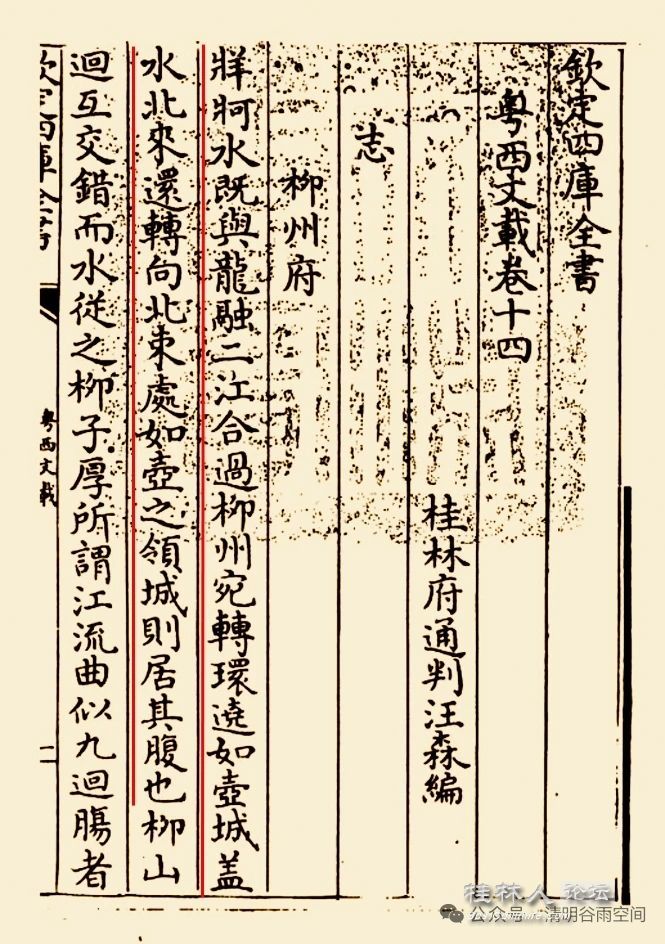 欽定四庫全書
粵西文載卷十四
桂林府通判汪森編
志
柳州府
牂牁水既與龍融二江合過柳州宛轉環遶如壺城盖
水北來還轉向北束處如壺之領城則居其腹也柳山
迴互交錯而水從之柳子厚所謂江流曲似九迴腸者
欽定四庫全書
粵西文載
二
桂林人论坛
公众号·清明谷雨空间